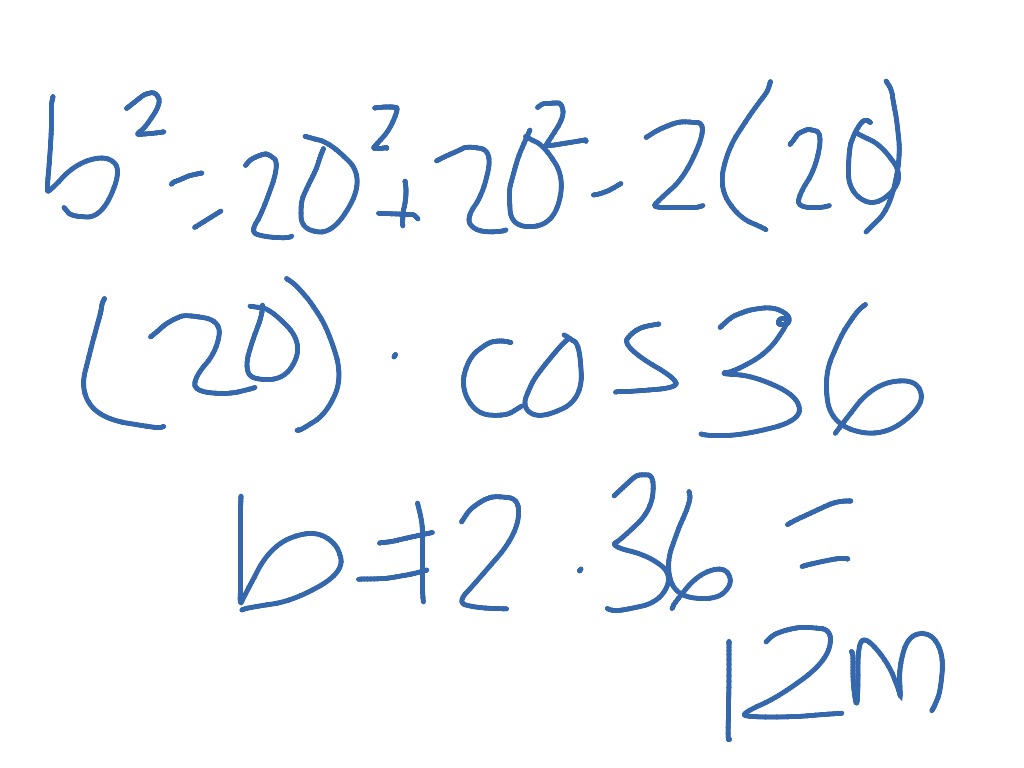 b² = 20² + 20² - 2(20)
(20) · cos 36
b = 12.36 =
12m